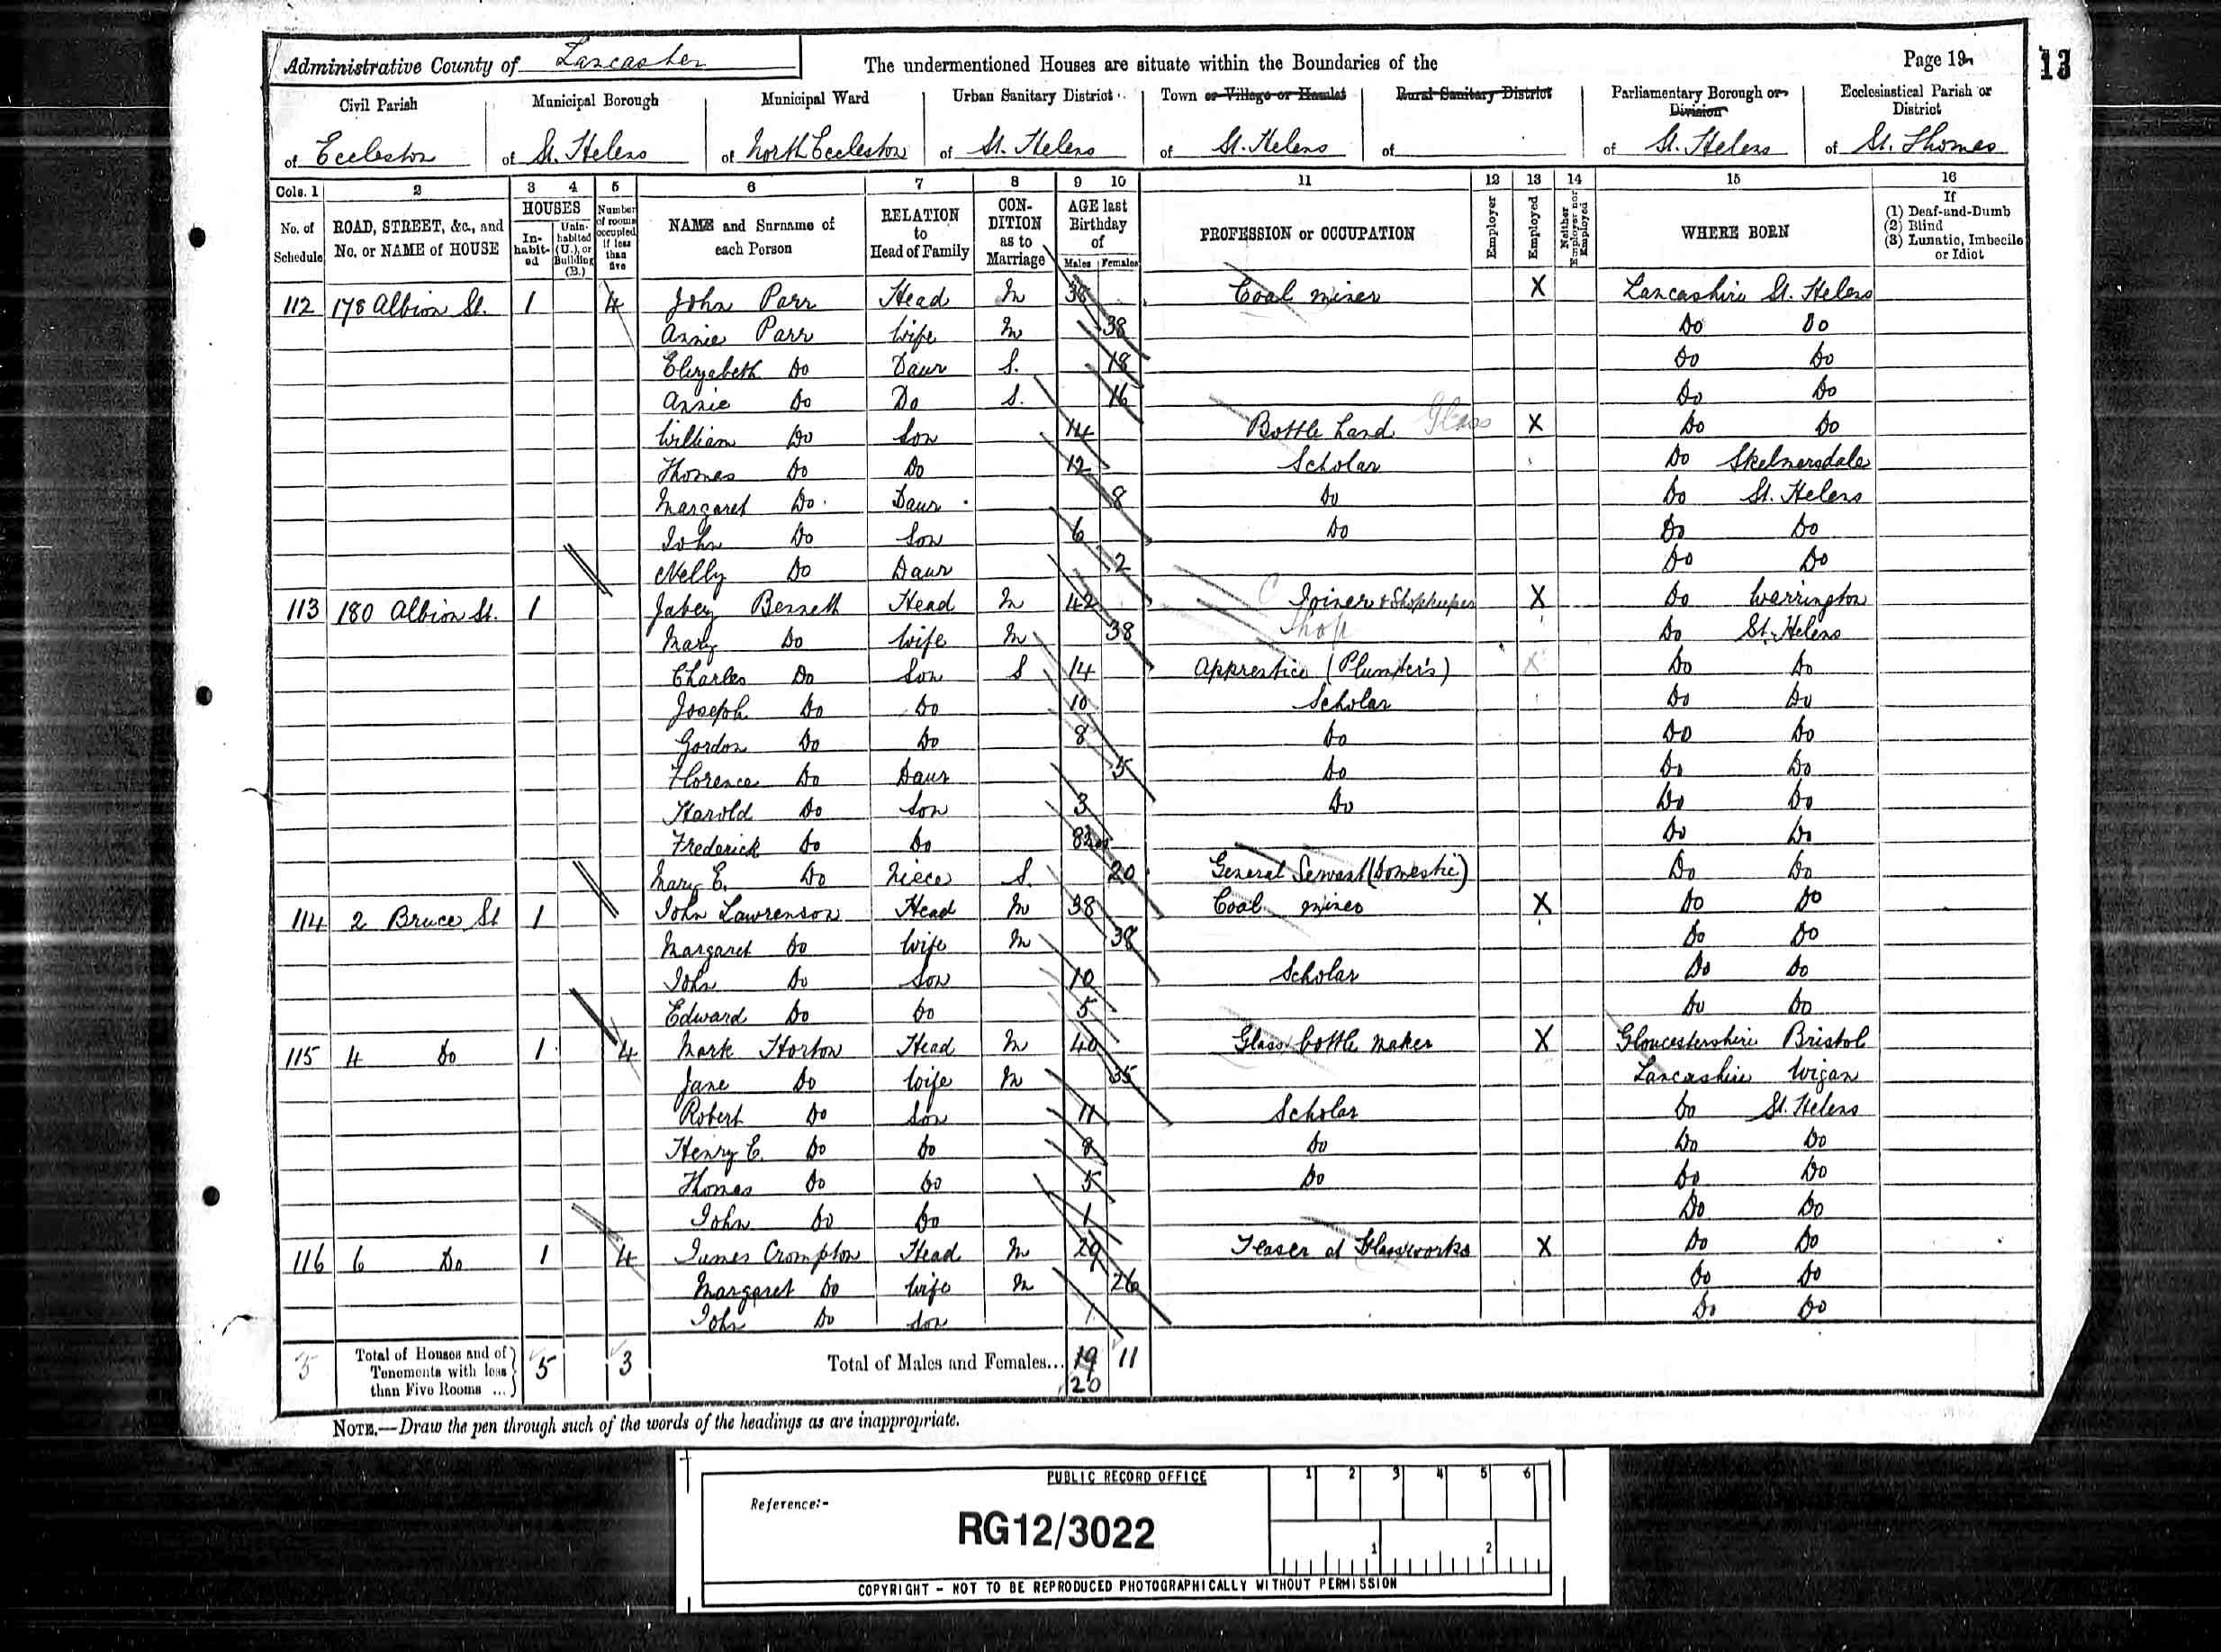 Administrative County of Lancaster The undermentioned Houses are situate within the Boundaries of the Page 19 13
Civil Parish Municipal Borough Municipal Ward Urban Sanitary District Town or Village or Hamlet Rural Sanitary District Parliamentary Borough or Division Ecclesiastical Parish or District
of Eccleston of St. Helens of North Eccleston of St. Helens of St. Helens of of St. Helens of St. Thomas
Cols. 1 2 3 4 5 6 7 8 9 10 11 12 13 14 15 16
No. of Schedule ROAD, STREET, &c., and No. or NAME of HOUSE HOUSES Inhabited Uninhabited (U.), or Building (B.) Number of rooms occupied if less than five NAME and Surname of each Person RELATION to Head of Family CONDITION as to Marriage AGE last Birthday of Males Females PROFESSION or OCCUPATION Employer Employed Neither Employer nor Employed WHERE BORN If (1) Deaf-and-Dumb (2) Blind (3) Lunatic, Imbecile or Idiot
112 178 Albion St. 1 4 John Parr Head M 38 Coal miner X Lancashire St. Helens
Annie Parr Wife M 38 Do Do
Elizabeth Do Daur S. 18 Do Do
Annie Do Do S. 16 Do Do
William Do Son 14 Bottle hand Glass X Do Do
Thomas Do Do 12 Scholar Do Skelmersdale
Margaret Do Daur 8 Do Do St. Helens
John Do Son 6 Do Do Do
Nelly Do Daur 2 Do Do
113 180 Albion St. 1 Jabez Bennett Head M 42 Joiner & Shopkeeper X Do Warrington
Mary Do Wife M 38 Shop Do St. Helens
Charles Do Son S 14 Apprentice (Plumber's) X Do Do
Joseph Do Do 10 Scholar Do Do
Gordon Do Do 8 Do Do Do
Florence Do Daur 5 Do Do Do
Harold Do Son 3 Do Do Do
Frederick Do Do 8 Do Do
Mary E. Do Niece S. 20 General Servant (Domestic) Do Do
114 2 Bruce St 1 John Lawrenson Head M 38 Coal miner X Do Do
Margaret Do Wife M 38 Do Do
John Do Son 10 Scholar Do Do
Edward Do Do 5 Do Do
115 4 Do 1 4 Mark Horton Head M 40 Glass bottle maker X Gloucestershire Bristol
Jane Do Wife M 35 Lancashire Wigan
Robert Do Son 11 Scholar Do St. Helens
Henry E. Do Do 8 Do Do Do
Thomas Do Do 5 Do Do Do
John Do Do 1 Do Do
116 6 Do 1 4 James Crompton Head M 29 Teaser at Glassworks X Do Do
Margaret Do Wife M 26 Do Do
John Do Son 1 Do Do
5 Total of Houses and of Tenements with less than Five Rooms ... 5 3 Total of Males and Females... 19 11
20
NOTE.—Draw the pen through such of the words of the headings as are inappropriate.
PUBLIC RECORD OFFICE 1 2 3 4 5 6
Reference:-
RG12/3022
1 2
COPYRIGHT - NOT TO BE REPRODUCED PHOTOGRAPHICALLY WITHOUT PERMISSION